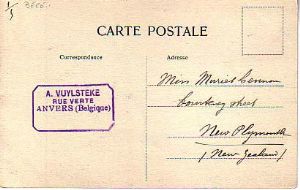 1/5
CARTE POSTALE
Correspondance
Adresse
Miss Muriel Cannon
A. VUYLSTEKE
RUE VERTE
ANVERS (Belgique)
Courtenay street
New Plymouth
(New Zealand)